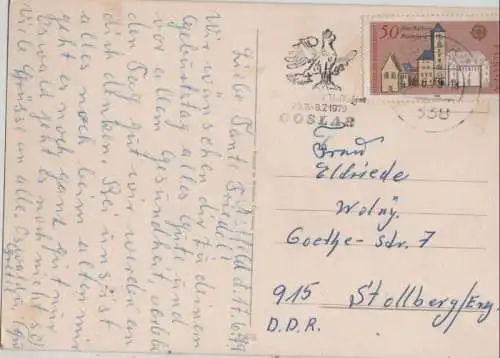 Hoffeld d. 17.6.79
Liebe Tante Friedel
Wir wünschen dir zu deinem
Geburtstag alles Gute und
vor allem Gesundheit, wobei
den Tag gut wir werden an
dich denken. Bei uns ist
alles noch beim alten mir
geht es noch ganz gut nur
Ewald geht es noch nicht so
viele Grüsse an alle.
50
29.6.-8.7.1979
GOSLAR
338
Frau
Elfriede
Wolny
Goethe-str. 7
915 Stollberg/Erzg.
D.D.R.